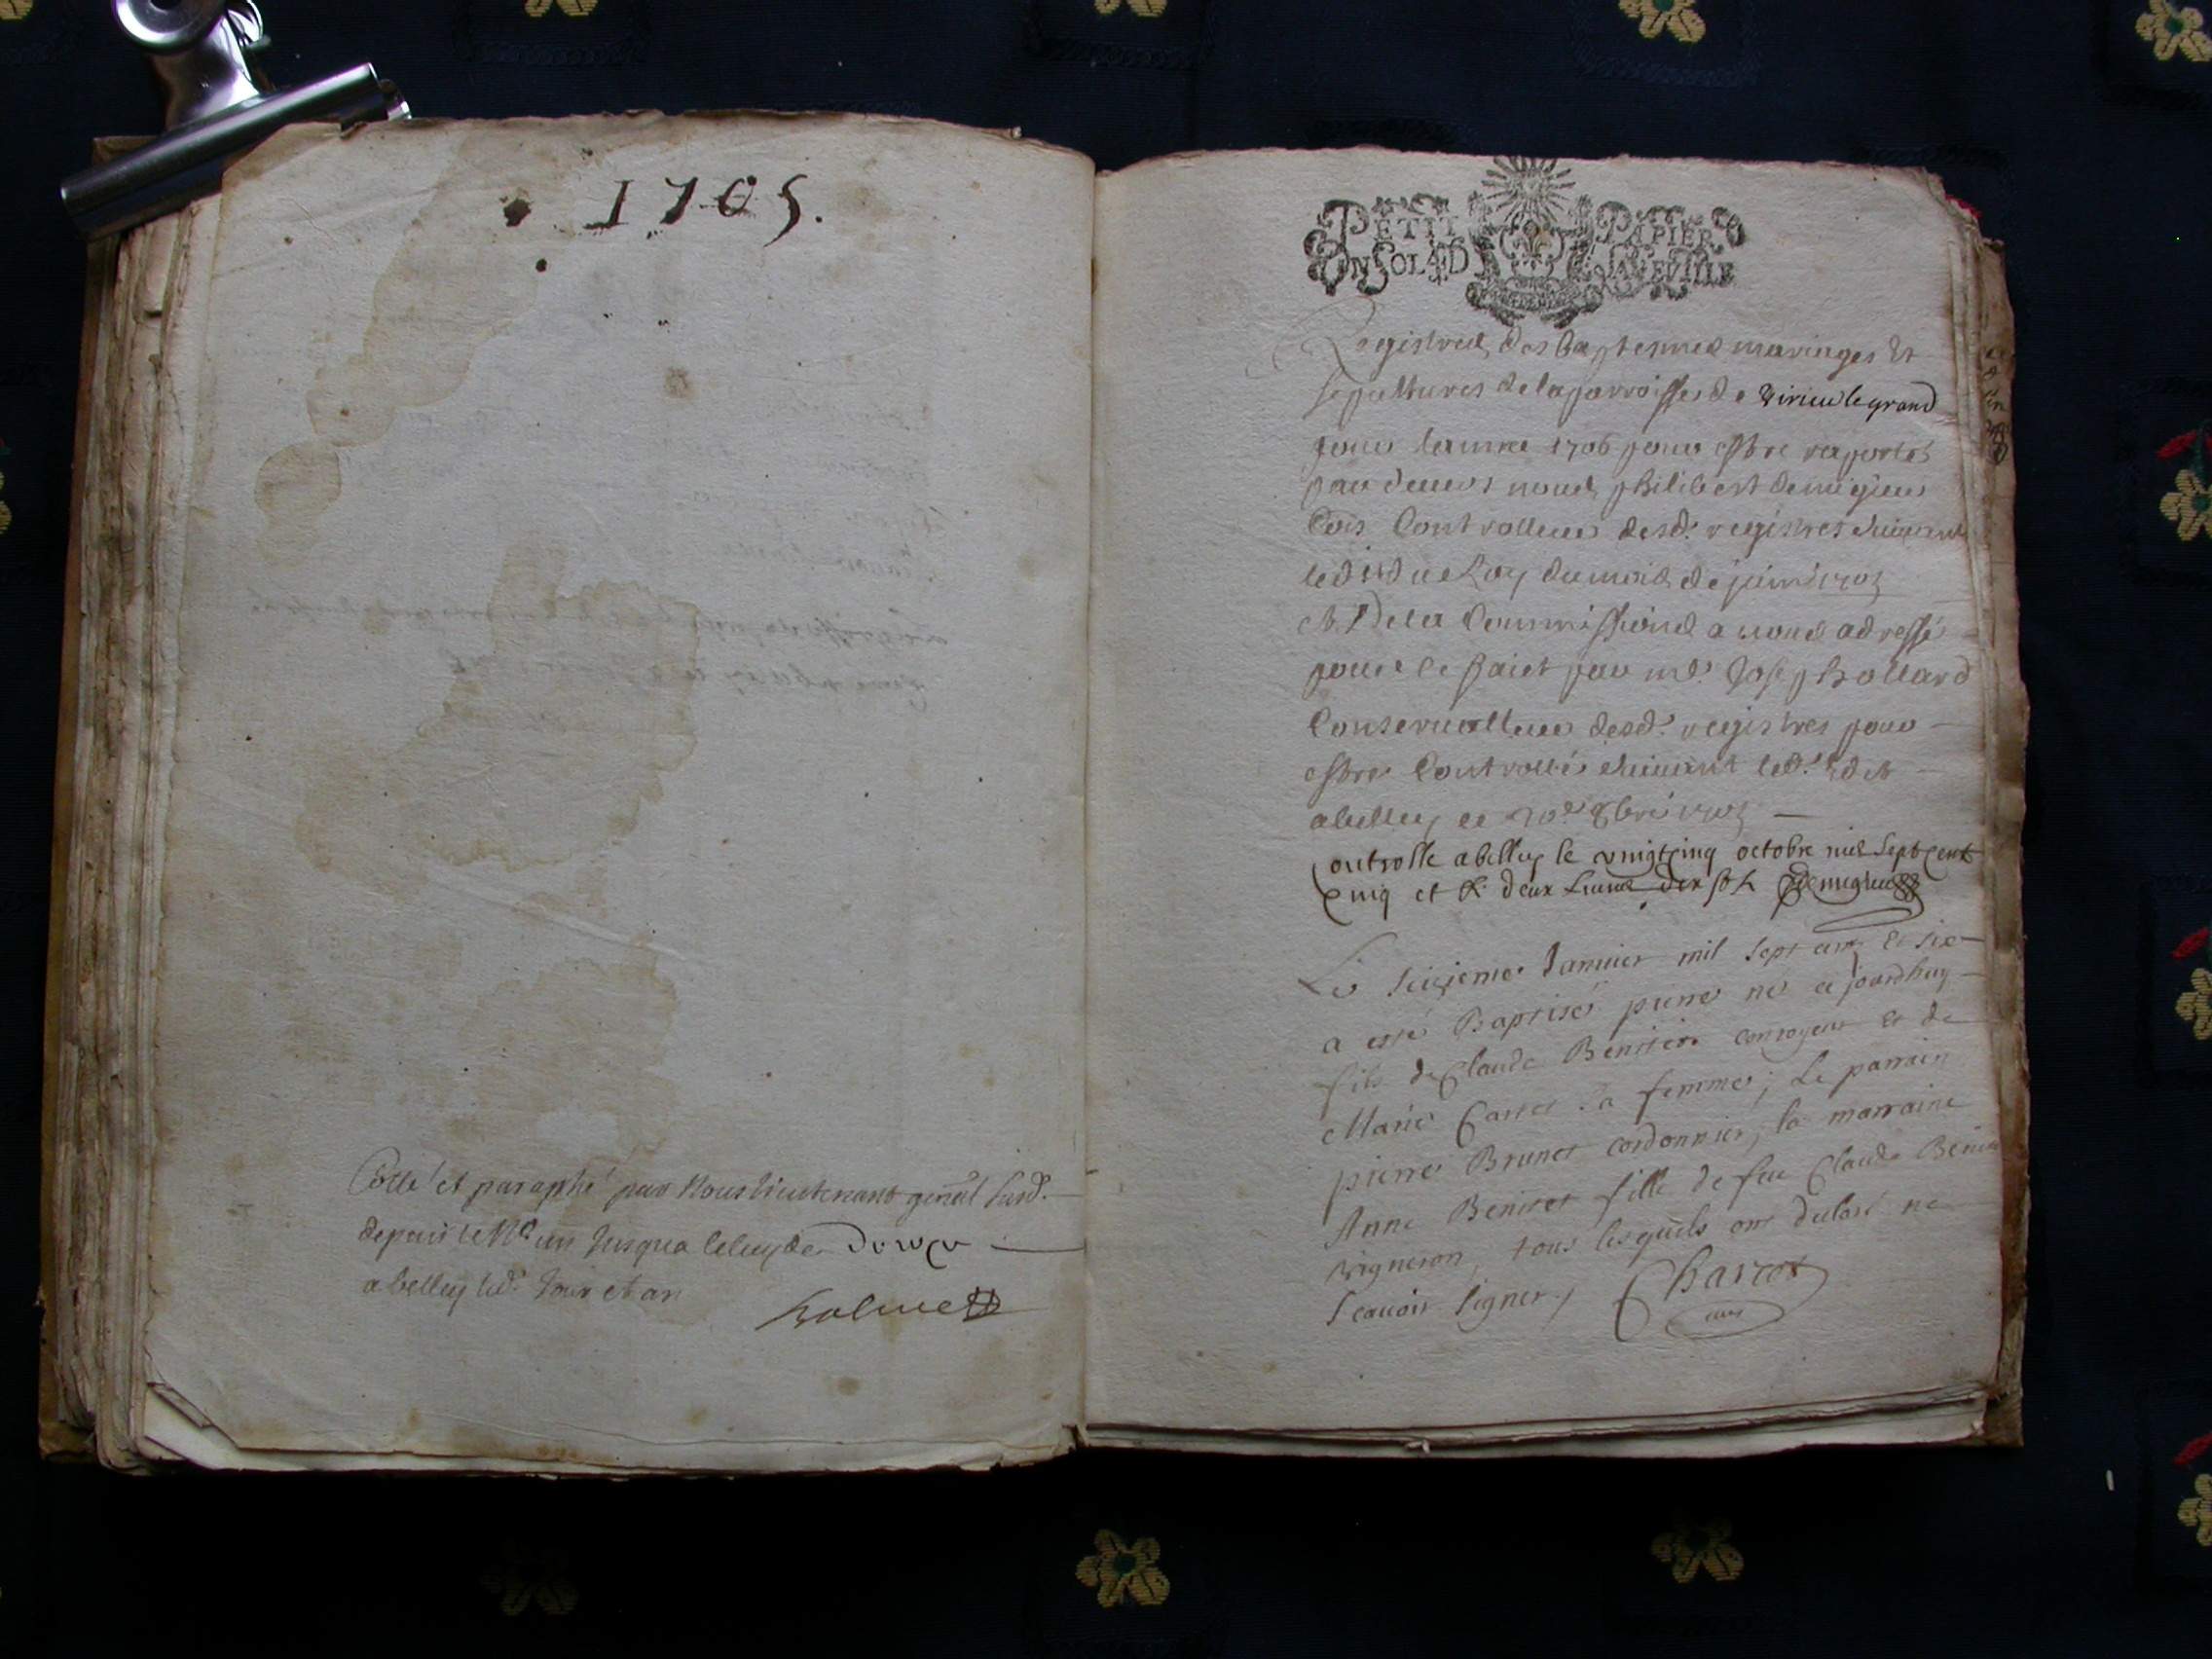 1705.
Cotté et paraphé par Nous Lieutenant genêal susd.
depuis le No un Jusqua celuy de douze
a belley led. Jour et an
PETIT PAPIER
UN SOL 4 D LA FEUILLE
Registres des baptesmes mariages Et
sepultures de la parroisse de Virieu le grand
pour lannee 1706 pour estre raportés
par devers nous philibert demigieu
Controlleur desd. registres suivant
ledit du Roy du mois de juin 1705
et De la Commissions a nous adressé
pour ce faict par md. Joseph ollard
Conservatteur desd. registres pour
estre Controllés suivant led. Edit
a belley ce 8bre 1705
Controlle a belley le vingt cinq octobre mil sept cent
Cinq et R. deux Livres dix sols Demigieu
Le seizieme Januier mil sept cent Et six
a esté Baptisé pierre né ce jourdhuy
fils de Claude Benitier conroyeur et de
Marie Carret sa femme; Le parrain
pierre Brunet cordonnier, la marraine
Anne Benitet fille de feu Claude
vigneron, tous lesquels ont declaré ne
scauoir signer./ Charcot
curé